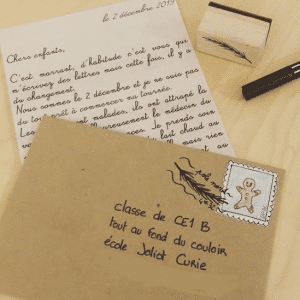 le 2 décembre 2019
Chers enfants,
C'est marrant, d'habitude c'est vous qui
m'écrivez des lettres mais cette fois, il y a
du changement.
Nous sommes le 2 décembre et je ne suis pas
du tout prêt à commencer ma tournée.
Les malades, ils ont attrapé la
heureusement le médecin du
Je prends soin
lait chaud au
mais rien
et au
classe de CE1 B
tout au fond du couloir
école Joliot Curie